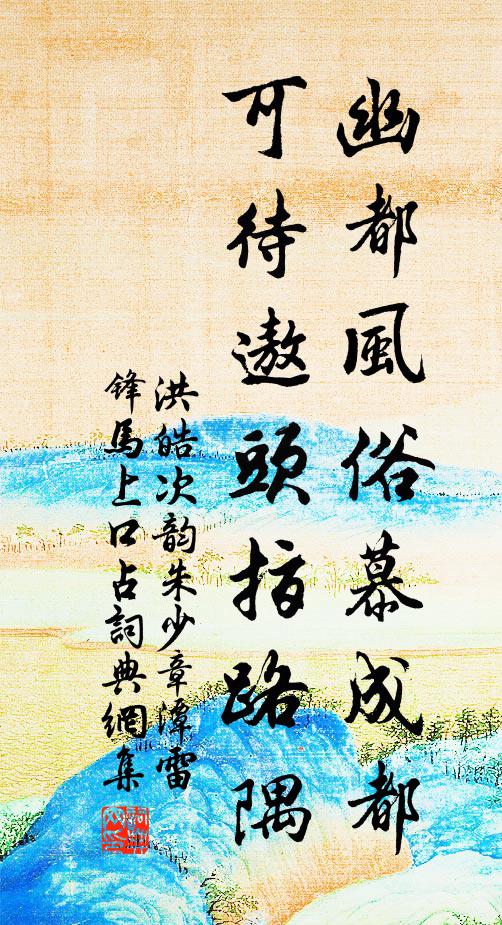 幽都風俗慕成都
可待遨頭指路隅
洪皓次韵朱少章潭雷
鋒馬上口占詞典網集